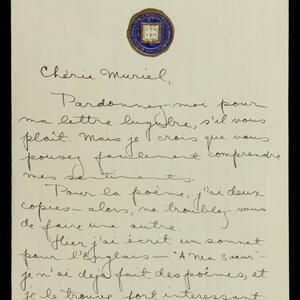 Chérie Muriel,
Pardonnez-moi pour
ma lettre lugubre, s'il vous
plaît. Mais je crois que vous
pouvez facilement comprendre
mes sentiments.
Pour la poème, j'ai deux
copies—alors, ne troublez-vous
de faire une autre.
Hier j'ai écrit un sonnet
pour l'Englais—"A Mes Soeur"—
je n'ai deja fait des poèmes, et
je le trouve fort interessant